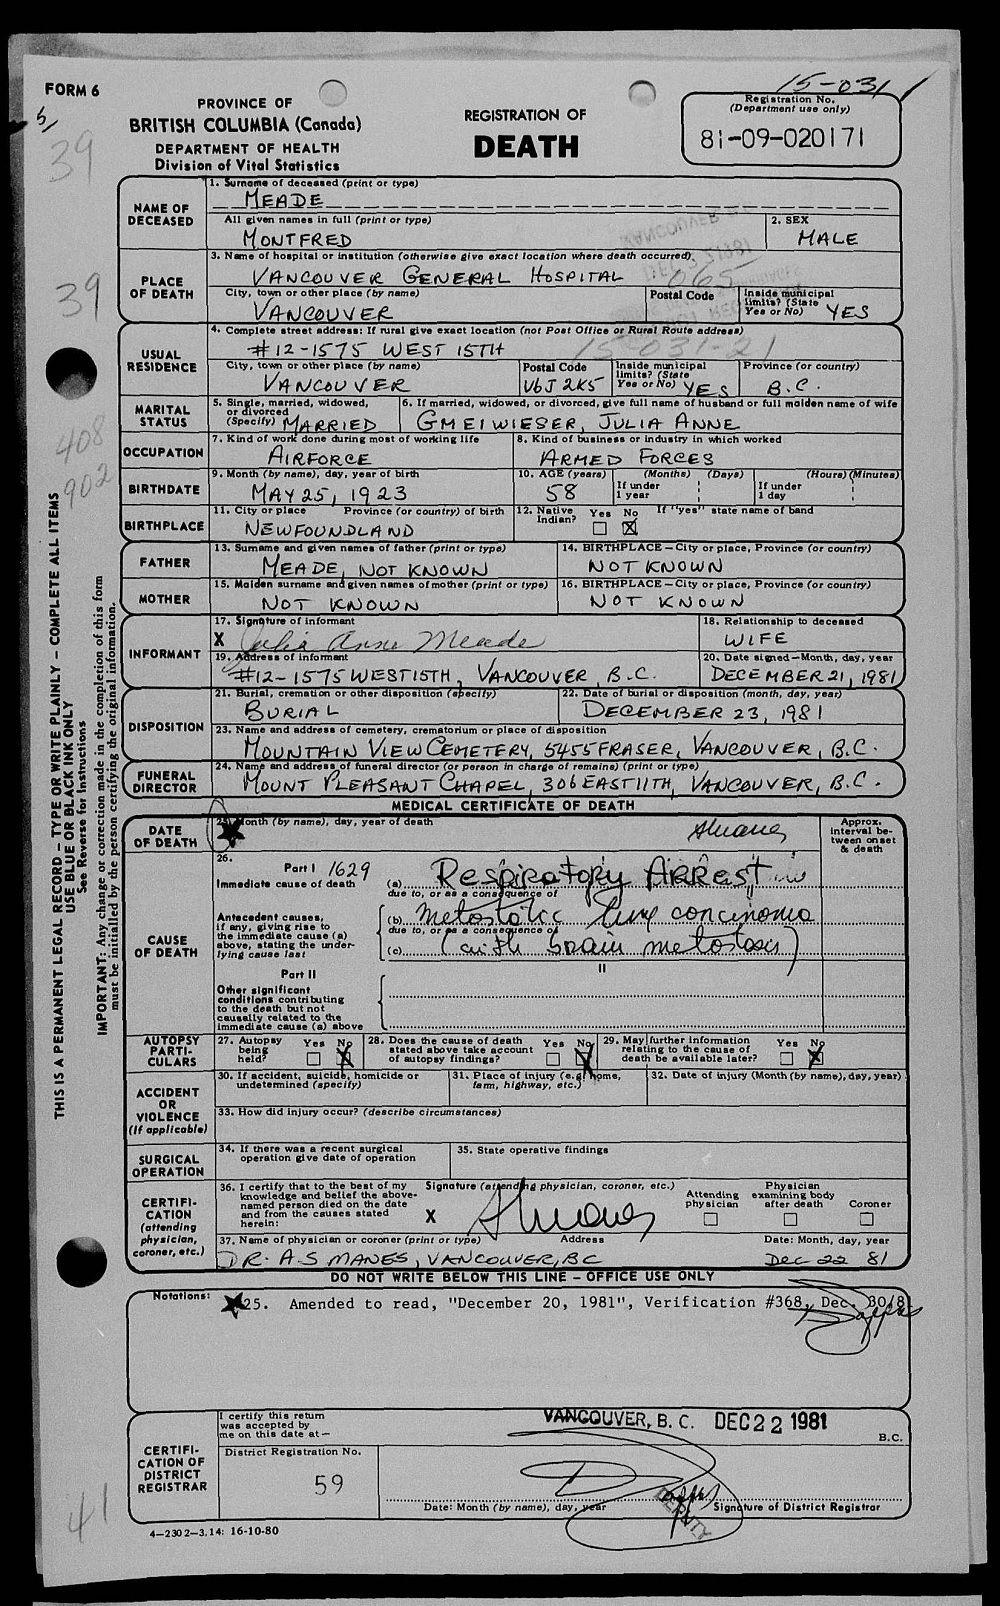 FORM 6
PROVINCE OF
BRITISH COLUMBIA (Canada)
DEPARTMENT OF HEALTH
Division of Vital Statistics
REGISTRATION OF
DEATH
15-031
Registration No.
(Department use only)
81-09-020171
39
39
408
902
41
THIS IS A PERMANENT LEGAL RECORD - TYPE OR WRITE PLAINLY - COMPLETE ALL ITEMS
USE BLUE OR BLACK INK ONLY
See Reverse for Instructions
IMPORTANT: Any change or correction made in the completion of this form
must be initialed by the person certifying the original information.
NAME OF DECEASED
1. Surname of deceased (print or type)
MEADE
All given names in full (print or type)
MONTFRED
2. SEX
MALE
PLACE OF DEATH
3. Name of hospital or institution (otherwise give exact location where death occurred)
VANCOUVER GENERAL HOSPITAL
065
City, town or other place (by name)
VANCOUVER
Postal Code
Inside municipal limits? (State Yes or No)
YES
USUAL RESIDENCE
4. Complete street address: If rural give exact location (not Post Office or Rural Route address)
#12-1575 WEST 15TH
15-031-21
City, town or other place (by name)
VANCOUVER
Postal Code
V6J 2K5
Inside municipal limits? (State Yes or No)
YES
Province (or country)
B.C.
MARITAL STATUS
5. Single, married, widowed, or divorced (Specify)
MARRIED
6. If married, widowed, or divorced, give full name of husband or full maiden name of wife
GMEIWIESER, JULIA ANNE
OCCUPATION
7. Kind of work done during most of working life
AIRFORCE
8. Kind of business or industry in which worked
ARMED FORCES
BIRTHDATE
9. Month (by name), day, year of birth
MAY 25, 1923
10. AGE (years)
58
(Months) (Days)
If under 1 year
(Hours) (Minutes)
If under 1 day
BIRTHPLACE
11. City or place Province (or country) of birth
NEWFOUNDLAND
12. Native Indian? Yes No
If "yes" state name of band
FATHER
13. Surname and given names of father (print or type)
MEADE, NOT KNOWN
14. BIRTHPLACE - City or place, Province (or country)
NOT KNOWN
MOTHER
15. Maiden surname and given names of mother (print or type)
NOT KNOWN
16. BIRTHPLACE - City or place, Province (or country)
NOT KNOWN
INFORMANT
17. Signature of informant
X Julia Anne Meade
18. Relationship to deceased
WIFE
19. Address of informant
#12-1575 WEST 15TH, VANCOUVER, B.C.
20. Date signed - Month, day, year
DECEMBER 21, 1981
DISPOSITION
21. Burial, cremation or other disposition (specify)
BURIAL
22. Date of burial or disposition (month, day, year)
DECEMBER 23, 1981
23. Name and address of cemetery, crematorium or place of disposition
MOUNTAIN VIEW CEMETERY, 5455 FRASER, VANCOUVER, B.C.
FUNERAL DIRECTOR
24. Name and address of funeral director (or person in charge of remains) (print or type)
MOUNT PLEASANT CHAPEL, 306 EAST 11TH, VANCOUVER, B.C.
MEDICAL CERTIFICATE OF DEATH
DATE OF DEATH
25. Month (by name), day, year of death
Approx. interval between onset & death
CAUSE OF DEATH
26.
Part I 1629
Immediate cause of death
(a) Respiratory Arrest
due to, or as a consequence of
Antecedent causes, if any, giving rise to the immediate cause (a) above, stating the underlying cause last
(b) metastatic lung carcinoma
due to, or as a consequence of
(c) (with brain metastases)
Part II
Other significant conditions contributing to the death but not causally related to the immediate cause (a) above
AUTOPSY PARTICULARS
27. Autopsy being held? Yes No
28. Does the cause of death stated above take account of autopsy findings? Yes No
29. May further information relating to the cause of death be available later? Yes No
ACCIDENT OR VIOLENCE (If applicable)
30. If accident, suicide, homicide or undetermined (specify)
31. Place of injury (e.g. home, farm, highway, etc.)
32. Date of injury (Month (by name), day, year)
33. How did injury occur? (describe circumstances)
SURGICAL OPERATION
34. If there was a recent surgical operation give date of operation
35. State operative findings
CERTIFICATION (attending physician, coroner, etc.)
36. I certify that to the best of my knowledge and belief the above-named person died on the date and from the causes stated herein:
Signature (attending physician, coroner, etc.)
X
Attending physician
Physician examining body after death
Coroner
37. Name of physician or coroner (print or type)
Address
Date: Month, day, year
DR. A.S MANES, VANCOUVER, BC
Dec 22 81
DO NOT WRITE BELOW THIS LINE - OFFICE USE ONLY
Notations:
★25. Amended to read, "December 20, 1981", Verification #368, Dec. 30/81
CERTIFICATION OF DISTRICT REGISTRAR
I certify this return was accepted by me on this date at -
VANCOUVER, B. C. DEC 22 1981
B.C.
District Registration No.
59
Date: Month (by name), day, year
DEPUTY
Signature of District Registrar
4-2302-3.14: 16-10-80